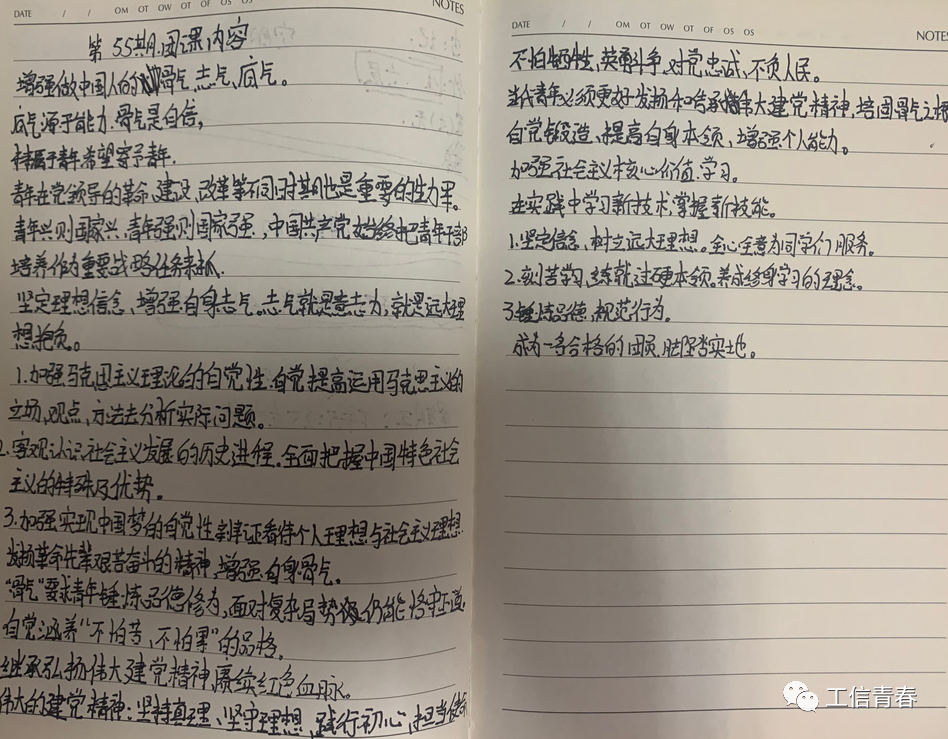 DATE / / OM OT OW OT OF OS OS NOTES
第55期团课内容
增强做中国人的骨气,志气,底气。
底气源于能力.骨气是自信,
属于青年.希望寄予青年.
青年在党领导的革命、建设、改革等不同时期也是重要的生力军。
青年兴则国家兴,青年强则国家强,中国共产党始终把青年干部
培养作为重要战略任务来抓.
坚定理想信念、增强自身志气。志气就是意志力,就是远大理
想抱负。
1.加强马克思主义理论的自觉性.自觉提高运用马克思主义的
立场,观点,方法去分析实际问题。
2.客观认识社会主义发展的历史进程.全面把握中国特色社会
主义的特殊及优势。
3.加强实现中国梦的自觉性辩证看待个人理想与社会主义理想.
发扬革命先辈艰苦奋斗的精神,增强自身骨气。
"骨气"要求青年锤炼品德修为,面对复杂局势仍能恪守正道
自觉涵养"不怕苦,不怕累"的品格.
继承弘扬伟大建党精神,赓续红色血脉.
伟大的建党精神:坚持真理、坚守理想,践行初心,担当使命
DATE / / OM OT OW OT OF OS OS NOTES
不怕牺牲,英勇斗争,对党忠诚,不负人民。
当代青年必须更好发扬和传承伟大建党精神,培固骨气之根
自觉锻造、提高自身本领、增强个人能力。
加强社会主义核心价值学习。
在实践中学习新技术,掌握新技能。
1.坚定信念,树立远大理想。全心全意为同学们服务。
2.刻苦学习,练就过硬本领.养成终身学习的理念。
3.锤炼品德,规范行为.
成为一名合格的团员,脚踏实地。
工信青春